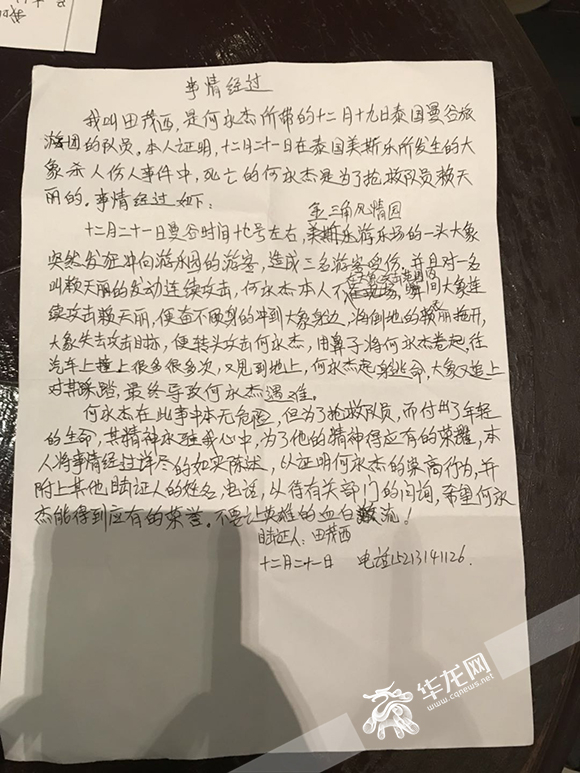 事情经过
我叫田茂西,是何永杰所带的十二月十九日泰国曼谷旅
游团的队员。本人证明,十二月二十一日在泰国美斯乐所发生的大
象杀人伤人事件中,死亡的何永杰是为了抢救队员赖天
丽的。事情经过如下:
金三角风情园
十二月二十一日曼谷时间 左右,美斯乐游乐场的一头大象
突然发狂冲向游乐园的游客,造成三名游客受伤,并且对一名
叫赖天丽的发动连续攻击,何永杰本人不在 ,瞬间大象连
续攻击赖天丽,便奋不顾身的冲到大象身边,将倒地的赖天丽拖开,
大象失去攻击目标,便转头攻击何永杰,由鼻子将何永杰卷起,往
汽车上撞上很多很多次,又 到地上,何永杰起身逃命,大象又追上
对其踩踏,最终导致何永杰遇难。
何永杰在此事中本无危险,但为了抢救队员,而付出了年轻
的生命,其精神永驻我心中,为了他的精神得应有的荣耀,本
人将事情经过详尽的如实陈述,以证明何永杰的崇高行为,并
附上其他目止证人的姓名,电话,以待有关部门的问询,希望何永
杰能得到应有的荣誉。不要让英雄的血白 流!
目止证人:田茂西
十二月二十一日 电话15213141126.
华龙网
www.cqnews.net